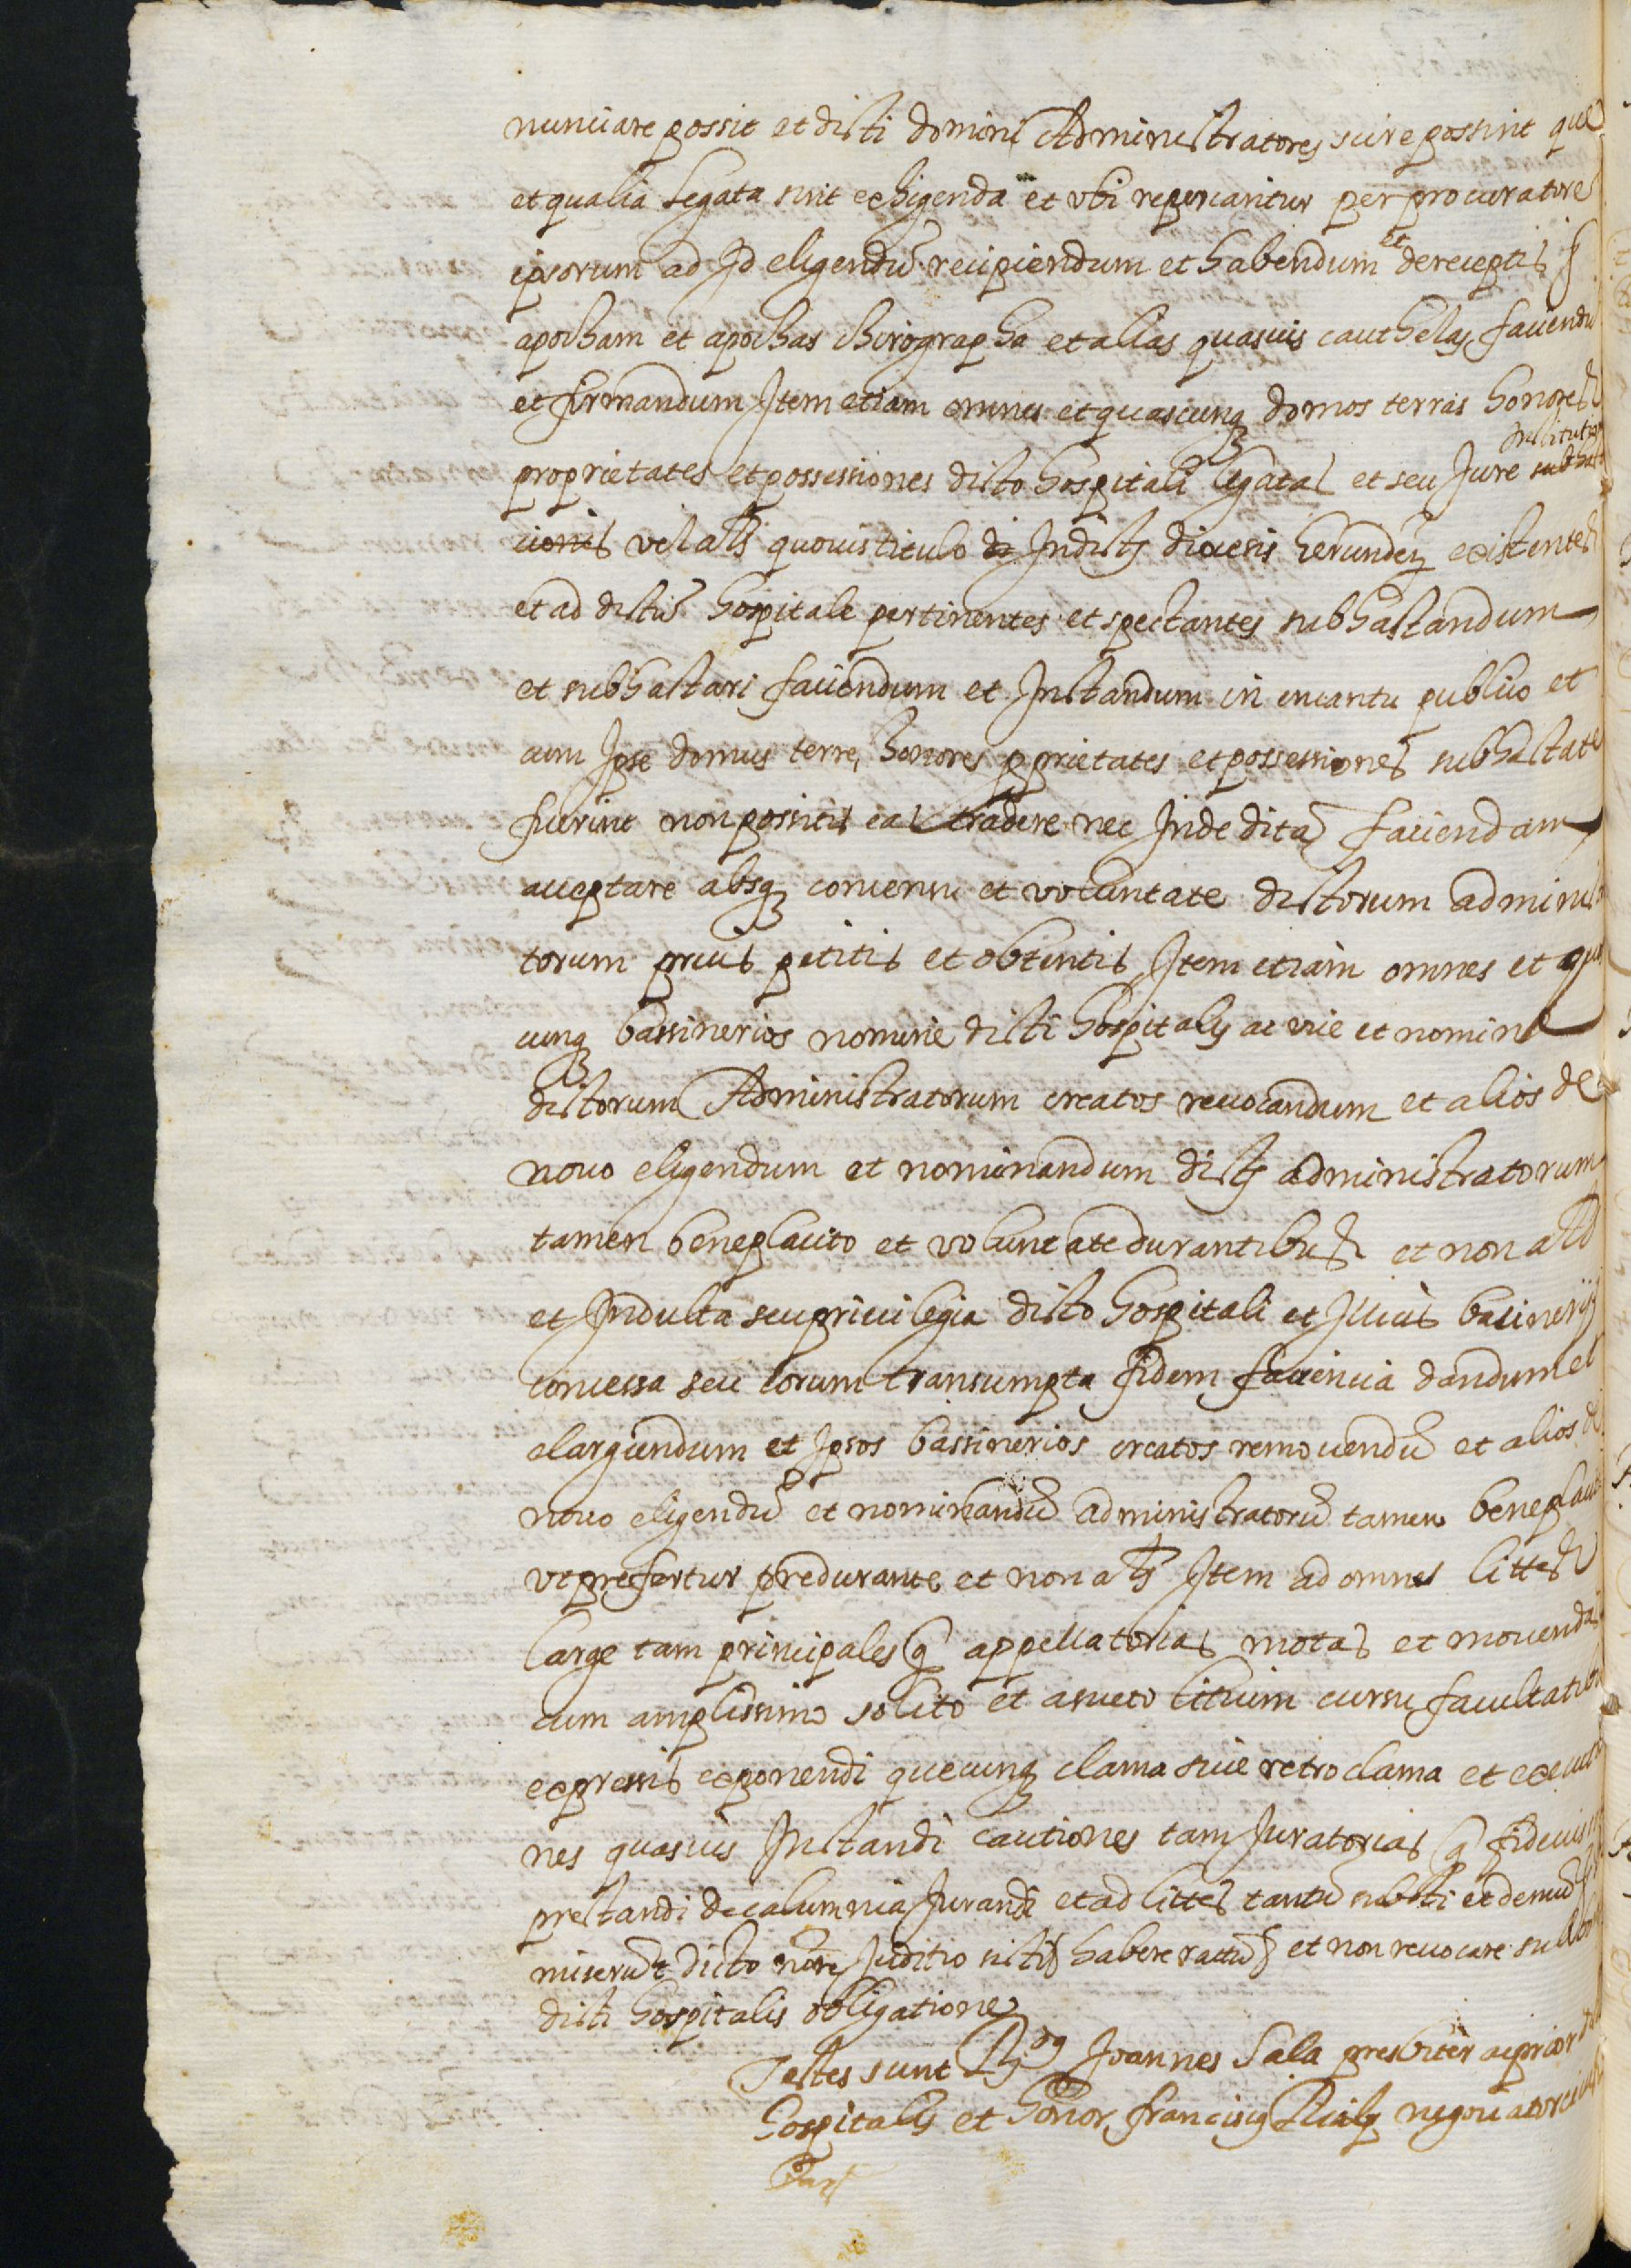 nunciare possit et dicti domini Administratores scire possint que
et qualia legata sint exhigenda et vbi reperiantur per procuratore
ipsorum ad Id eligendũ recipiendum et habendum et de receptis
apocham et apochas chirographa et alias quasuis cauthelas faciendũ
et firmandum Item etiam omnes et quascunq domos terras honores
proprietates et possessiones dicto hospitali legatas et seu Jure Institution
cionis vel als quouis titulo Indictis diocesis Gerunden existentes
et ad dictũ hospitale pertinentes et spectantes subhastandum
et subhastari faciendum et Instandum in encantu publico et
cum Ipse domus terre, honores pprietates et possessiones subhastate
fuerint non possitis eas tradere nec Inde dita faciendam
acceptare absq concensu et voluntate dictorum adminis
torum prius petitis et obtentis Item etiam omnes et qu
cunq bassinerios nomine dicti hospitalis ac vice et nomine
dictorum Administratorum creatos reuocandum et alios de
nouo eligendum et nominandum dictis administratorum
tamen beneplacito et voluntate durantibus et non als
et Indulta seu priuilegia dicto hospitali et Illius bacinerijs
concessa seu eorum transumpta fidem faciencia dandum et
elargiendum et Ipsos bassinerios creatos remouendũ et alios de
nouo eligendũ et nominandũ administratorũ tamen beneplaci
vt prefertur predurante et non als Item ad omnes littes
large tam principales q appellatorias motas et mouendas
cum amplissimo solito et asueto litium cursu facultatib
expressis exponendi quecunq clama siue retroclama et execucio
nes quasuis Instandi cautiones tam Juratorias q fideiuss
prestandi de calumnia Jurandi et ad littes tantũ substi et demũ
miserũt dicto nore Juditio sisti habere ratũ et non reuocare sub
dicti hospitalis obligatione
Testes sunt Rdus Joannes Sala presbiter ac prior
hospitalis et honor franciscus negociator